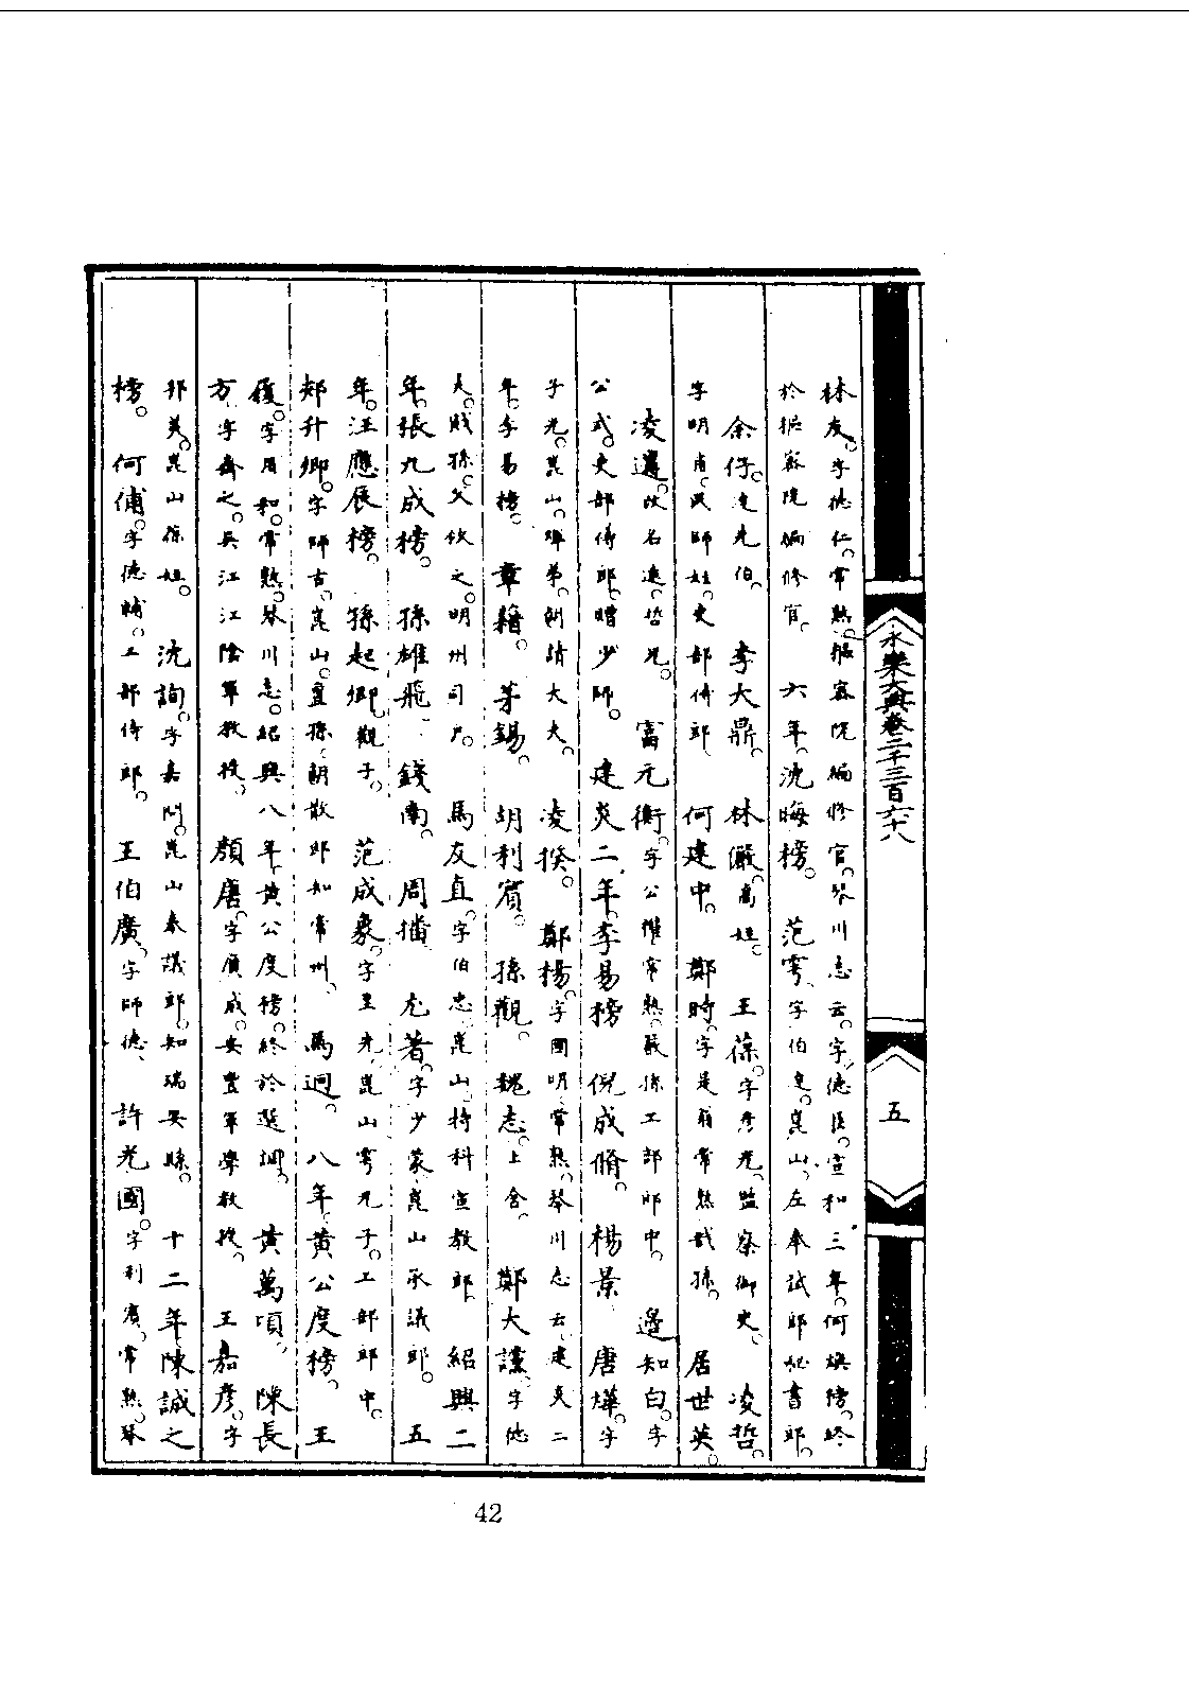 永樂大典卷二千三百六十八
五
林友。字德仁。常熟。樞密院編修官。琴川志云。字德臣。宣和三年。何㷆榜。終
於樞密院編修官。 六年。沈晦榜。 范雩。字伯達。崑山。左奉試郎秘書郎。
余仔。達光伯。 李大鼎。 林儼。高姪。 王葆。字彥光。監察御史。 凌哲。
字明甫。民師姪。吏部侍郎 何建中。 鄭時。字是翁常熟戩孫。 居世英。
凌邁。改名進。哲兄。 富元衡。字公權常熟。嚴孫工部郎中。 邊知白。字
公式。吏部侍郎。贈少師。 建炎二年。李易榜 倪成脩。 楊景 唐燁。字
子光。崑山。煇弟。朝請大夫。 凌揆。 鄭楊。字國明常熟。琴川志云建炎二
年。李易榜。 章籍。 茅錫。 胡利賓。 孫觀。 魏志。上舍。 鄭大謹。字他
夫。戝孫。父攸之。明州司戶。 馬友直。字伯忠崑山。特科宣教郎。 紹興二
年。張九成榜。 孫雄飛 錢南。 周播 尨著。字少蒙崑山承議郎。 五
年。汪應辰榜。 孫起卿。觀子。 范成象。字至先崑山雩兄子。工部郎中。
郟升卿。字師古。崑山。亶孫朝散郎知常州。 馬迥。 八年黃公度榜。 王
復。字周和。常熟。琴川志。紹興八年黃公度榜。終於選調。 黃萬頃。 陳長
方字齊之。吳江江陰軍教授。 顏唐。字廣成。安豐軍學教授。 王嘉彥。字
邦美。崑山葆姪。 沈詢。字嘉問。崑山奉議郎。知瑞安縣。 十二年陳誠之
榜。 何俌。字德輔。工部侍郎。 王伯廣。字師德。 許光國。字利賓。常熟。琴
42